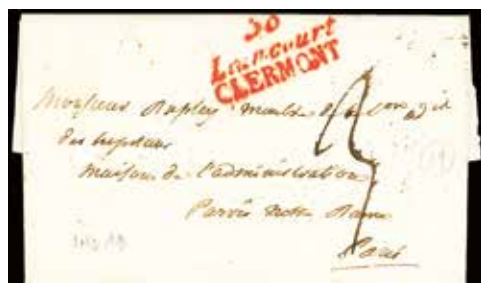 Liancourt
CLERMONT
Monsieur Duplay membre de la Com on ad
des hospices
maison de l'administration
Parvis notre Dame
Paris